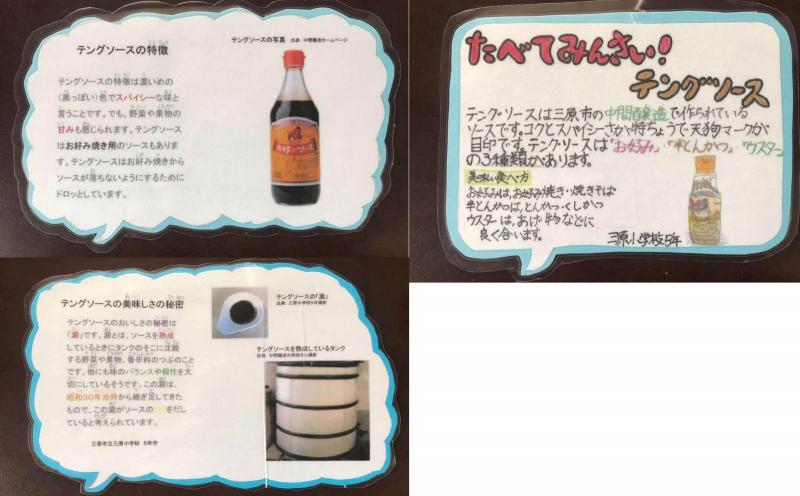 テングソースの特徴
テングソースの写真 出典：中間醸造ホームページ
テングソースの特徴は濃いめの
（黒っぽい）色でスパイシーな味と
言うことです。でも、野菜や果物の
甘みも感じられます。テングソース
はお好み焼き用のソースもありま
す。テングソースはお好み焼きから
ソースが落ちないようにするために
ドロッとしています。
たべてみんさい！
テングソース
テングソースは三原市の中間醸造で作られている
ソースです。コクとスパイシーさが特ちょうで天狗マークが
目印です。テングソースは「お好み」「半とんかつ」「ウスター」
の3種類があります。
美味しい食べ方
お好みは、お好み焼き・焼きそば
半とんかつは、とんかつ・くしかつ
ウスターは、あげ物などに
良く合います。
三原小学校5年
テングソースの美味しさの秘密
テングソースのおいしさの秘密は
「澱」です。澱とは、ソースを熟成
しているときにタンクのそこに沈殿
する野菜や果物、香辛料のつぶのこと
です。他にも味のバランスや個性を大
切にしているそうです。この澱は、
昭和30年当時から継ぎ足してきた
もので、この澱がソースのコクをだし
ていると考えられています。
三原市立三原小学校 5年作
テングソースの「澱」
出典：三原小学校5年撮影
テングソースを熟成しているタンク